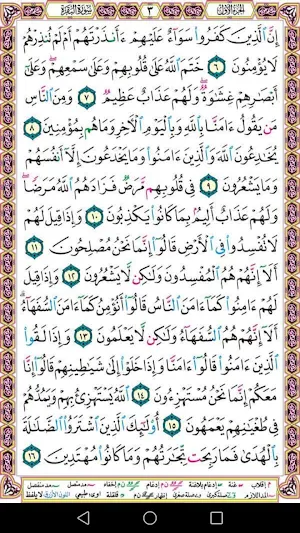 الجزء الأول ٣ سورة البقرة
إِنَّ ٱلَّذِينَ كَفَرُوا۟ سَوَآءٌ عَلَيْهِمْ ءَأَنذَرْتَهُمْ أَمْ لَمْ تُنذِرْهُمْ
لَا يُؤْمِنُونَ ٦ خَتَمَ ٱللَّهُ عَلَىٰ قُلُوبِهِمْ وَعَلَىٰ سَمْعِهِمْ وَعَلَىٰٓ
أَبْصَـٰرِهِمْ غِشَـٰوَةٌ وَلَهُمْ عَذَابٌ عَظِيمٌ ٧ وَمِنَ ٱلنَّاسِ
مَن يَقُولُ ءَامَنَّا بِٱللَّهِ وَبِٱلْيَوْمِ ٱلْـَٔاخِرِ وَمَا هُم بِمُؤْمِنِينَ ٨
يُخَـٰدِعُونَ ٱللَّهَ وَٱلَّذِينَ ءَامَنُوا۟ وَمَا يَخْدَعُونَ إِلَّآ أَنفُسَهُمْ
وَمَا يَشْعُرُونَ ٩ فِى قُلُوبِهِم مَّرَضٌ فَزَادَهُمُ ٱللَّهُ مَرَضًا
وَلَهُمْ عَذَابٌ أَلِيمٌۢ بِمَا كَانُوا۟ يَكْذِبُونَ ١٠ وَإِذَا قِيلَ لَهُمْ
لَا تُفْسِدُوا۟ فِى ٱلْأَرْضِ قَالُوٓا۟ إِنَّمَا نَحْنُ مُصْلِحُونَ ١١
أَلَآ إِنَّهُمْ هُمُ ٱلْمُفْسِدُونَ وَلَـٰكِن لَّا يَشْعُرُونَ ١٢ وَإِذَا قِيلَ
لَهُمْ ءَامِنُوا۟ كَمَآ ءَامَنَ ٱلنَّاسُ قَالُوٓا۟ أَنُؤْمِنُ كَمَآ ءَامَنَ ٱلسُّفَهَآءُ
أَلَآ إِنَّهُمْ هُمُ ٱلسُّفَهَآءُ وَلَـٰكِن لَّا يَعْلَمُونَ ١٣ وَإِذَا لَقُوا۟
ٱلَّذِينَ ءَامَنُوا۟ قَالُوٓا۟ ءَامَنَّا وَإِذَا خَلَوْا۟ إِلَىٰ شَيَـٰطِينِهِمْ قَالُوٓا۟ إِنَّا
مَعَكُمْ إِنَّمَا نَحْنُ مُسْتَهْزِءُونَ ١٤ ٱللَّهُ يَسْتَهْزِئُ بِهِمْ وَيَمُدُّهُمْ
فِى طُغْيَـٰنِهِمْ يَعْمَهُونَ ١٥ أُو۟لَـٰٓئِكَ ٱلَّذِينَ ٱشْتَرَوُا۟ ٱلضَّلَـٰلَةَ
بِٱلْهُدَىٰ فَمَا رَبِحَت تِّجَـٰرَتُهُمْ وَمَا كَانُوا۟ مُهْتَدِينَ ١٦